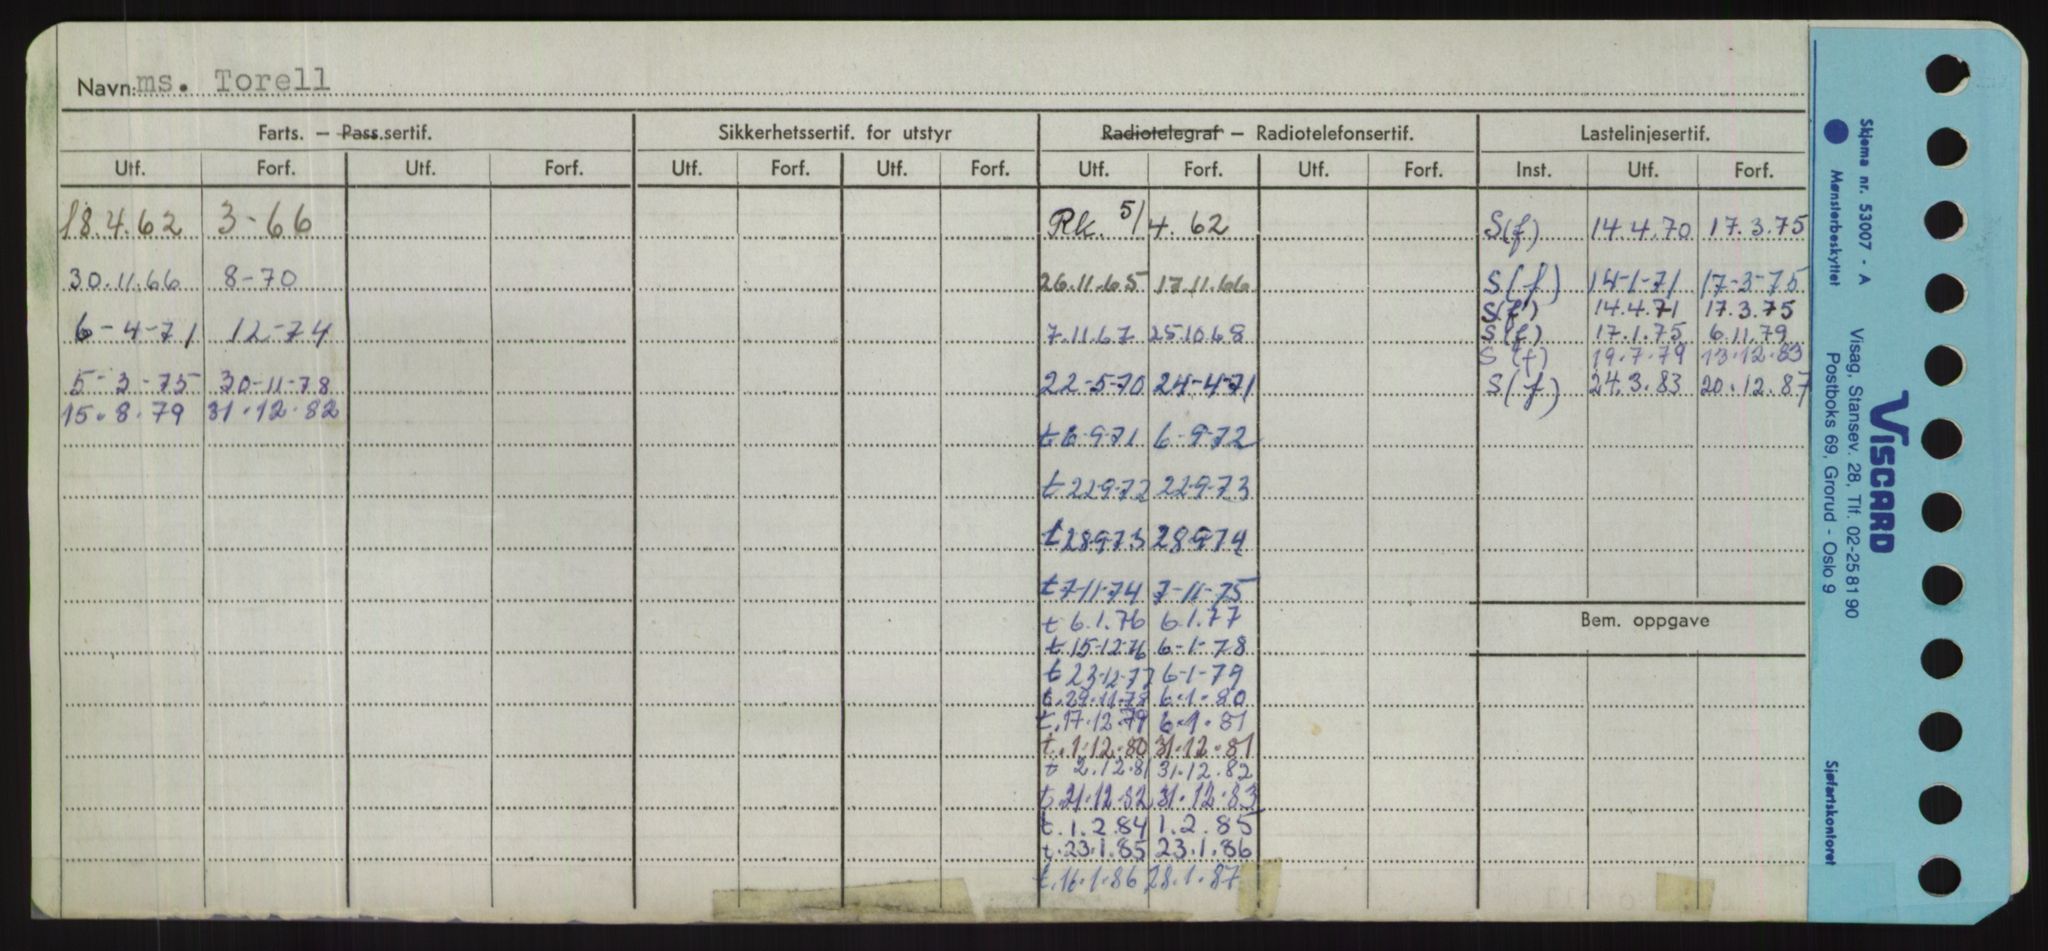 Navn: ms. Torell
Farts. – Pass.sertif. Sikkerhetssertif. for utstyr Radiotelegraf – Radiotelefonsertif. Lastelinjesertif.
Utf. Forf. Utf. Forf. Utf. Forf. Utf. Forf. Utf. Forf. Utf. Forf. Inst. Utf. Forf.
18.4.62 3-66 Rk. 5/4. 62 S(f) 14.4.70 17.3.75
30.11.66 8-70 26.11.65 17.11.66 S(f) 14-1-71 17-3-75
S(f) 14.4.71 17.3.75
6-4-71 12-74 7.11.67 25.10.68 S(f) 17.1.75 6.11.79
S(f) 19.7.79 13.12.83
5-3-75 30-11-78 22-5-70 24-4-71 S(f) 24.3.83 20.12.87
15.8.79 31.12.82
t 6-9-71 6-9-72
t 22-9-72 22-9-73
t 28-9-73 28-9-74
t 7-11-74 7-11-75
t 6.1.76 6.1.77
Bem. oppgave
t 15-12-76 6-1-78
t 23-12-77 6-1-79
t.29.11.78 6.1.80
t.17.12.79 6.1.81
t.1.12.80 31.12.81
t 2.12.81 31.12.82
t.21.12.82 31.12.83
t.1.2.84 1.2.85
t.23.1.85 23.1.86
t.16.1.86 28.1.87
Skjema nr. 53007 - A
Mønsterbeskyttet
Visag, Stansev. 28, Tlf. 02-25 81 90
Postboks 69, Grorud - Oslo 9
VISCARD
Sjøfartskontoret